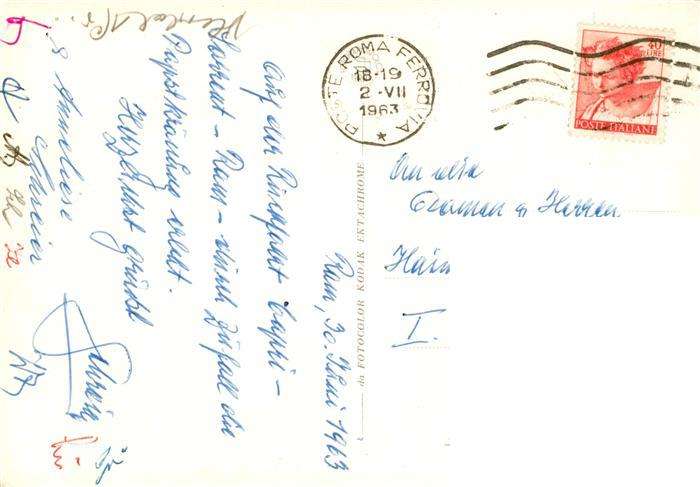 Rom, 30. Juni 1963
Auf der Rückfahrt Capri -
Sorrent - Rom - durch Zufall die
Papstkrönung erlebt.
Herzlichst grüßt
& Anneliese
Schreier
POSTE ROMA FERROVIA
18-19
2-VII
1963
40
LIRE
POSTE ITALIANE
da FOTOCOLOR KODAK EKTACHROME
An alle
Damen u. Herren
Hain
I.